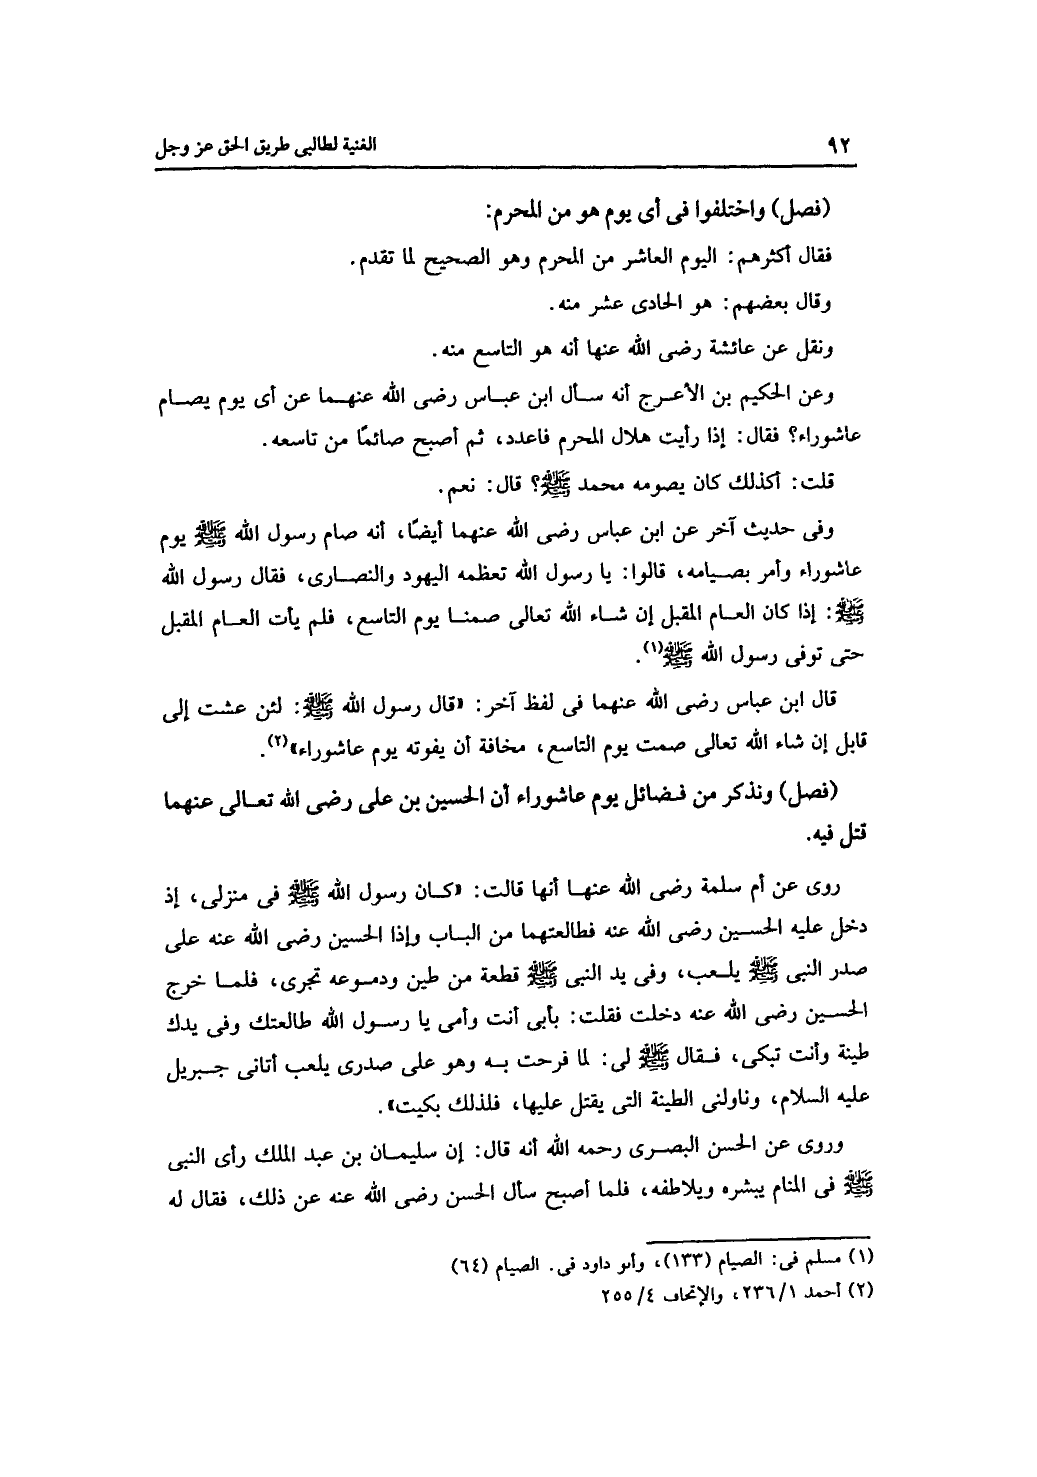 ٩٢ الغنية لطالبى طريق الحق عز وجل
(فصل) واختلفوا فى أى يوم هو من المحرم:
فقال أكثرهم: اليوم العاشر من المحرم وهو الصحيح لما تقدم.
وقال بعضهم: هو الحادى عشر منه.
ونقل عن عائشة رضى الله عنها أنه هو التاسع منه.
وعن الحكيم بن الأعرج أنه سأل ابن عباس رضى الله عنهما عن أى يوم يصام
عاشوراء؟ فقال: إذا رأيت هلال المحرم فاعدد، ثم أصبح صائمًا من تاسعه.
قلت: أكذلك كان يصومه محمد ﷺ؟ قال: نعم.
وفى حديث آخر عن ابن عباس رضى الله عنهما أيضًا، أنه صام رسول الله ﷺ يوم
عاشوراء وأمر بصيامه، قالوا: يا رسول الله تعظمه اليهود والنصارى، فقال رسول الله
ﷺ: إذا كان العام المقبل إن شاء الله تعالى صمنا يوم التاسع، فلم يأت العام المقبل
حتى توفى رسول الله ﷺ(١).
قال ابن عباس رضى الله عنهما فى لفظ آخر: «قال رسول الله ﷺ: لئن عشت إلى
قابل إن شاء الله تعالى صمت يوم التاسع، مخافة أن يفوته يوم عاشوراء»(٢).
(فصل) ونذكر من فضائل يوم عاشوراء أن الحسين بن على رضى الله تعالى عنهما
قتل فيه.
روى عن أم سلمة رضى الله عنها أنها قالت: «كان رسول الله ﷺ فى منزلى، إذ
دخل عليه الحسين رضى الله عنه فطالعتهما من الباب وإذا الحسين رضى الله عنه على
صدر النبى ﷺ يلعب، وفى يد النبى ﷺ قطعة من طين ودموعه تجرى، فلما خرج
الحسين رضى الله عنه دخلت فقلت: بأبى أنت وأمى يا رسول الله طالعتك وفى يدك
طينة وأنت تبكى، فقال ﷺ لى: لما فرحت به وهو على صدرى يلعب أتانى جبريل
عليه السلام، وناولنى الطينة التى يقتل عليها، فلذلك بكيت».
وروى عن الحسن البصرى رحمه الله أنه قال: إن سليمان بن عبد الملك رأى النبى
ﷺ فى المنام يبشره ويلاطفه، فلما أصبح سأل الحسن رضى الله عنه عن ذلك، فقال له
(١) مسلم فى: الصيام (١٣٣)، وأبو داود فى. الصيام (٦٤)
(٢) أحمد ٢٣٦/١، والإتحاف ٢٥٥/٤